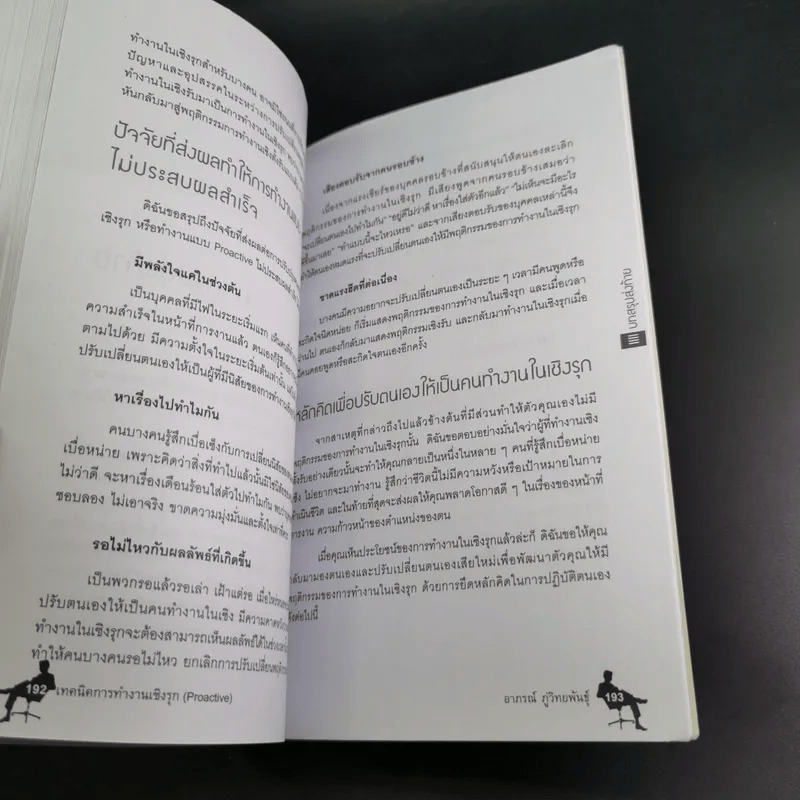 ทำงานในเชิงรุกสำหรับบางคน
ปัญหาและอุปสรรคในระหว่างการ
ทำงานในเชิงรับมาเป็นการทำงานในเชิงรุก
หันกลับมาสู่พฤติกรรมการทำงานเชิงรับ
ปัจจัยที่ส่งผลทำให้การทำงาน
ไม่ประสบผลสำเร็จ
ดิฉันขอสรุปถึงปัจจัยที่ส่งผลต่อการ
เชิงรุก หรือทำงานแบบ Proactive ไม่ประสบ
มีพลังใจแค่ในช่วงต้น
เป็นบุคคลที่มีไฟในระยะเริ่มแรก
ความสำเร็จในหน้าที่การงานแล้ว ตนเองก็รู้สึก
ตามไปด้วย มีความตั้งใจในระยะเริ่มต้นเท่านั้น
ปรับเปลี่ยนตนเองให้เป็นผู้ที่มีนิสัยของการทำงาน
หาเรื่องไปทำไมกัน
คนบางคนรู้สึกเบื่อเซ็งกับการเปลี่ยนนิสัย
เบื่อหน่าย เพราะคิดว่าสิ่งที่ทำไปแล้วนั้นมิใช่
ไม่ว่าดี จะหาเรื่องเดือนร้อนใส่ตัวไปทำไมกัน
ชอบลอง ไม่เอาจริง ขาดความมุ่งมั่นและตั้งใจ
รอไม่ไหวกับผลลัพธ์ที่เกิดขึ้น
เป็นพวกรอแล้วรอเล่า เฝ้าแต่รอ เมื่อไหร่
ปรับตนเองให้เป็นคนทำงานในเชิง มีความคาดหวัง
ทำงานในเชิงรุกจะต้องสามารถเห็นผลลัพธ์ได้ในช่วง
ทำให้คนบางคนรอไม่ไหว ยกเลิกการปรับเปลี่ยน
192 เทคนิคการทำงานเชิงรุก (Proactive)
เสียงตอบรับจากคนรอบข้าง
เนื่องจากแรงเชียร์ของบุคคลรอบข้างที่สนับสนุนให้ตนเองละเลิก
พฤติกรรมของการทำงานในเชิงรุก มีเสียงพูดจากคนรอบข้างเสมอว่า
จะเปลี่ยนตนเองไปทำไมกัน" "อยู่ดีไม่ว่าดี หาเรื่องใส่ตัวอีกแล้ว" "ไม่เห็นจะมีอะไร
ขึ้นมาเลย" "ทำแบบนี้จะไหวเหรอ" และจากเสียงตอบรับของบุคคลเหล่านี้จึง
ทำให้ตนเองหมดแรงที่จะปรับเปลี่ยนตนเองให้มีพฤติกรรมของการทำงานในเชิงรุก
ขาดแรงฮึดที่ต่อเนื่อง
บางคนมีความอยากจะปรับเปลี่ยนตนเองเป็นระยะ ๆ เวลามีคนพูดหรือ
สะกิดใจนิดหน่อย ก็เริ่มแสดงพฤติกรรมของการทำงานในเชิงรุก และเมื่อเวลา
ผ่านไป ตนเองก็กลับมาแสดงพฤติกรรมเชิงรับ และกลับมาทำงานในเชิงรุกเมื่อ
มีคนคอยพูดหรือสะกิดใจตนเองอีกครั้ง
หลักคิดเพื่อปรับตนเองให้เป็นคนทำงานในเชิงรุก
จากสาเหตุที่กล่าวถึงไปแล้วข้างต้นที่มีส่วนทำให้ตัวคุณเองไม่มี
พฤติกรรมของการทำงานในเชิงรุกนั้น ดิฉันขอตอบอย่างมั่นใจว่าผู้ที่ทำงานเชิง
ตั้งรับอย่างเดียวนั้นจะทำให้คุณกลายเป็นหนึ่งในหลาย ๆ คนที่รู้สึกเบื่อหน่าย
เซ็ง ไม่อยากจะมาทำงาน รู้สึกว่าชีวิตนี้ไม่มีความหวังหรือเป้าหมายในการ
ดำเนินชีวิต และในท้ายที่สุดจะส่งผลให้คุณพลาดโอกาสดี ๆ ในเรื่องของหน้าที่
การงาน ความก้าวหน้าของตำแหน่งของตน
เมื่อคุณเห็นประโยชน์ของการทำงานในเชิงรุกแล้วล่ะก็ ดิฉันขอให้คุณ
กลับมามองตนเองและปรับเปลี่ยนตนเองเสียใหม่เพื่อพัฒนาตัวคุณให้มี
พฤติกรรมของการทำงานในเชิงรุก ด้วยการยึดหลักคิดในการปฏิบัติตนเอง
ดังต่อไปนี้
บทสรุปส่งท้าย
อาภรณ์ ภู่วิทยพันธุ์ 193